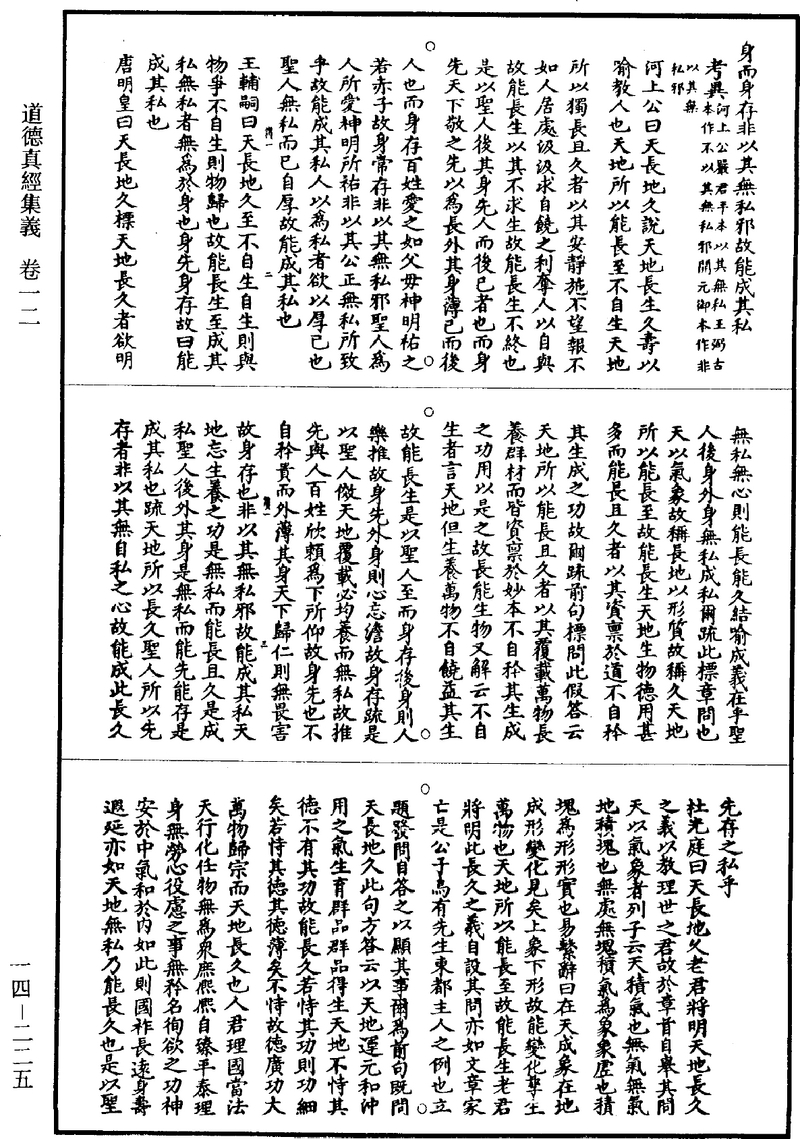 道德真經集義 卷一二
身而身存非以其無私邪故能成其私
考異河上公嚴君平本以其無私王弼古
本作不以其無私邪開元御本作非
以其無
私邪
河上公曰天長地久說天地長生久壽以
喻教人也天地所以能長至不自生天地
所以獨長且久者以其安靜施不望報不
如人居處汲汲求自饒之利奪人以自與
故能長生以其不求生故能長生不終也
是以聖人後其身先人而後己者也而身
先天下敬之先以為長外其身薄己而後
人也而身存百姓愛之如父母神明祐之
若赤子故身常存非以其無私邪聖人為
人所愛神明所祐非以其公正無私所致
乎故能成其私人以為私者欲以厚己也
聖人無私而已自厚故能成其私也
王輔嗣曰天長地久至不自生自生則與
物爭不自生則物歸也故能長生至成其
私無私者無為於身也身先身存故曰能
成其私也
唐明皇曰天長地久標天地長久者欲明
無私無心則能長能久結喻成義在乎聖
人後身外身無私成私爾疏此標章問也
天以氣象故稱長地以形質故稱久天地
所以能長至故能長生天地生物德用甚
多而能長且久者以其資稟於道不自矜
其生成之功故爾疏前句標問此假答云
天地所以能長且久者以其覆載萬物長
養群材而皆資稟於妙本不自矜其生成
之功用以是之故長能生物又解云不自
生者言天地但生養萬物不自饒益其生
故能長生是以聖人至而身存後身則人
樂推故身先外身則心忘澹故身存疏是
以聖人傚天地覆載必均養而無私故推
先與人百姓欣賴為下所仰故身先也不
自矜貴而外薄其身天下歸仁則無畏害
故身存也非以其無私邪故能成其私天
地忘生養之功是無私而能長且久是成
私聖人後外其身是無私而能先能存是
成其私也疏天地所以長久聖人所以先
存者非以其無自私之心故能成此長久
先存之私乎
杜光庭曰天長地久老君將明天地長久
之義以教理世之君故於章首自舉其問
天以氣象者列子云天積氣也無氣無氣
地積塊也無處無塊積氣為象象虛也積
塊為形形實也易繫辭曰在天成象在地
成形變化見矣上象下形故能變化孳生
萬物也天地所以能長至故能長生老君
將明此長久之義自設其問亦如文章家
亡是公子烏有先生東都主人之例也立
題發問自答之以顯其事爾為前句既問
天長地久此句方答云以天地運元和沖
用之氣生育群品群品得生天地不恃其
德不有其功故能長久若恃其功則功細
矣若恃其德其德薄矣不恃故德廣功大
萬物歸宗而天地長久也人君理國當法
天行化任物無為衆庶熙熙自臻平泰理
身無勞心役慮之事無矜名徇欲之功神
安於中氣和於內如此則國祚長遠身壽
遐延亦如天地無私乃能長久也是以聖
一四—二二五